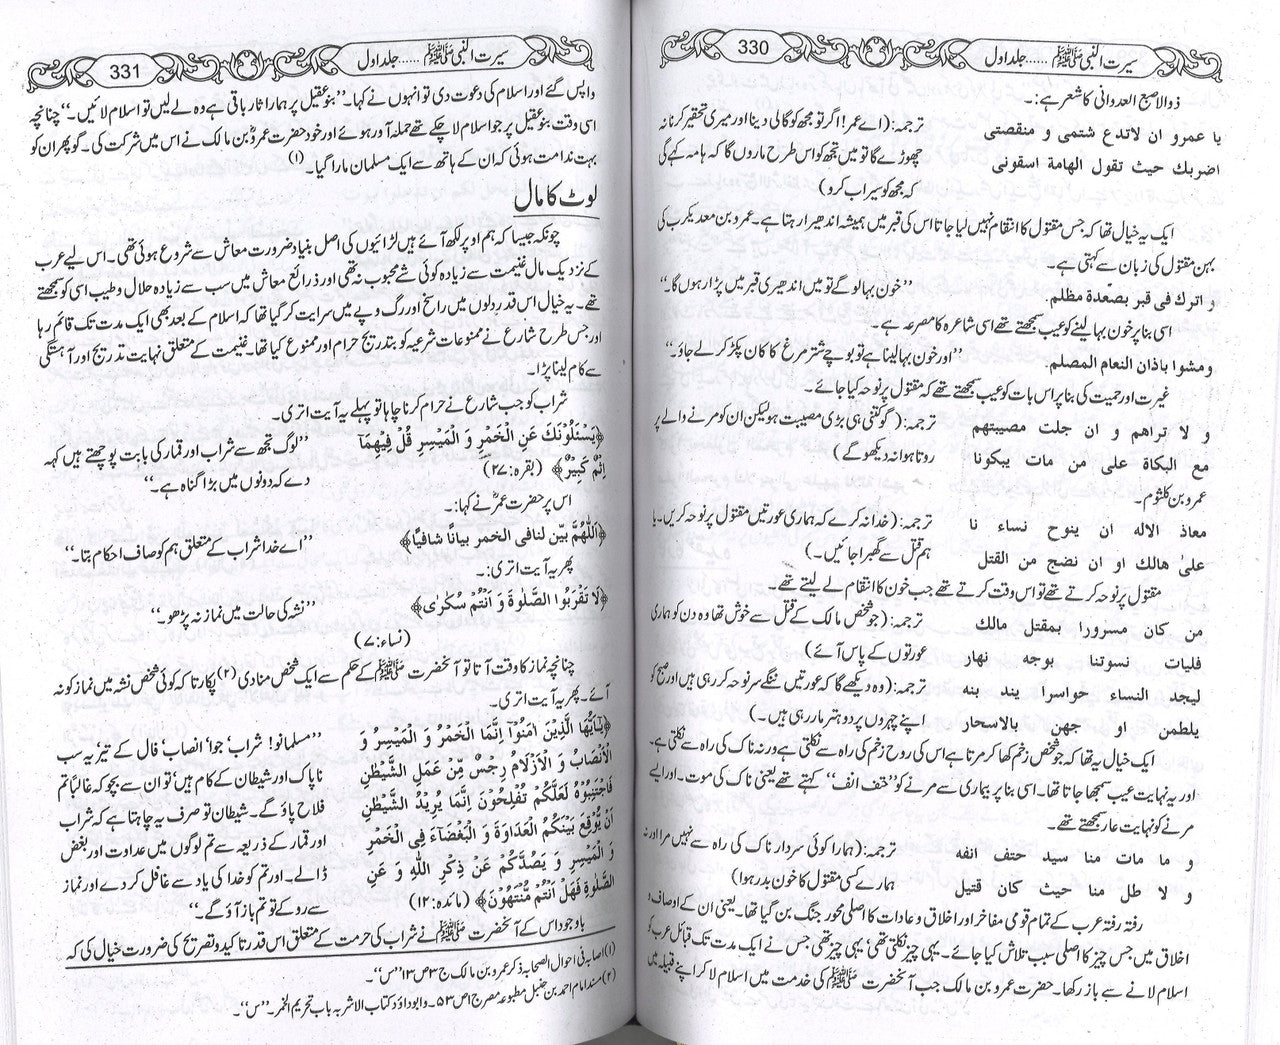 سیرت النبی ﷺ ...... جلد اول
330
ذوالاصبح العدوانی کا شعر ہے:۔
یا عمرو ان لاتدع شتمی و منقصتی
اضربك حیث تقول الهامة اسقونی
ترجمہ: (اے عمر! اگر تو مجھ کو گالی دینا اور میری تحقیر کرنا نہ
چھوڑے گا تو میں تجھ کو اس طرح ماروں گا کہ ہامہ کہے گی
کہ مجھ کو سیراب کرو)
ایک یہ خیال تھا کہ جس مقتول کا انتقام نہیں لیا جاتا اس کی قبر میں ہمیشہ اندھیرا رہتا ہے۔ عمرو بن معدیکرب کی
بہن مقتول کی زبان سے کہتی ہے۔
و اترك فی قبر بصعدة مظلم. ’’خون بہا لو گے تو میں اندھیری قبر میں پڑا رہوں گا۔‘‘
اسی بنا پر خون بہا لینے کو عیب سمجھتے تھے اسی شاعرہ کا مصرعہ ہے۔
ومشوا باذان النعام المصلم. ’’اور خون بہا لینا ہے تو بوچے شتر مرغ کا کان پکڑ کر لے جاؤ۔‘‘
غیرت اور حمیت کی بنا پر اس بات کو عیب سمجھتے تھے کہ مقتول پر نوحہ کیا جائے۔
و لا تراهم و ان جلت مصیبتهم
مع البكاة علی من مات یبكونا
ترجمہ: (گو کتنی ہی بڑی مصیبت ہو لیکن ان کو مرنے والے پر
روتا ہوا نہ دیکھو گے)
عمرو بن کلثوم۔
معاذ الاله ان ینوح نساء نا
علیٰ هالك او ان نضج من القتل
ترجمہ: (خدا نہ کرے کہ ہماری عورتیں مقتول پر نوحہ کریں۔ یا
ہم قتل سے گھبرا جائیں۔)
مقتول پر نوحہ کرتے تھے تو اس وقت کرتے تھے جب خون کا انتقام لے لیتے تھے۔
من كان مسرورا بمقتل مالك
فلیات نسوتنا بوجه نهار
ترجمہ: (جو شخص مالک کے قتل سے خوش تھا وہ دن کو ہماری
عورتوں کے پاس آئے)
لیجد النساء حواسرا یند بنه
یلطمن او جهن بالاسحار
ترجمہ: (وہ دیکھے گا کہ عورتیں ننگے سر نوحہ کر رہی ہیں اور صبح کو
اپنے چہروں پر دوہتر مار رہی ہیں۔)
ایک خیال یہ تھا کہ جو شخص زخم کھا کر مرتا ہے اس کی روح زخم کی راہ سے نکلتی ہے ورنہ ناک کی راہ سے نکلتی ہے۔
اور یہ نہایت عیب سمجھا جاتا تھا۔ اسی بنا پر بیماری سے مرنے کو ’’حتف انف‘‘ کہتے تھے یعنی ناک کی موت۔ اور ایسے
مرنے کو نہایت عار سمجھتے تھے۔
و ما مات منا سید حتف انفه
و لا طل منا حیث كان قتیل
ترجمہ: (ہمارا کوئی سردار ناک کی راہ سے نہیں مرا اور نہ
ہمارے کسی مقتول کا خون ہدر ہوا)
رفتہ رفتہ عرب کے تمام قومی مفاخر اور اخلاق و عادات کا اصلی محور جنگ بن گیا تھا۔ یعنی ان کے اوصاف و
اخلاق میں جس چیز کا اصلی سبب تلاش کیا جائے۔ یہی چیز نکلتی تھی‘ یہی چیز تھی جس نے ایک مدت تک قبائل عرب کو
اسلام لانے سے باز رکھا۔ حضرت عمرو بن مالک جب آنحضرت ﷺ کی خدمت میں اسلام لا کر اپنے قبیلہ میں
سیرت النبی ﷺ ...... جلد اول
331
واپس گئے اور اسلام کی دعوت دی تو انہوں نے کہا۔ ’’بنو عقیل پر ہمارا ثار باقی ہے وہ لے لیں تو اسلام لائیں۔‘‘ چنانچہ
اسی وقت بنو عقیل پر جو اسلام لا چکے تھے حملہ آور ہوئے اور خود حضرت عمروؓ بن مالک نے اس میں شرکت کی۔ گو پھر ان کو
بہت ندامت ہوئی کہ ان کے ہاتھ سے ایک مسلمان مارا گیا۔ (۱)
لوٹ کا مال
چونکہ جیسا کہ ہم اوپر لکھ آئے ہیں لڑائیوں کی اصل بنیاد ضرورت معاش سے شروع ہوئی تھی۔ اس لیے عرب
کے نزدیک مال غنیمت سے زیادہ کوئی شے محبوب نہ تھی اور ذرائع معاش میں سب سے زیادہ حلال و طیب اسی کو سمجھتے
تھے۔ یہ خیال اس قدر دلوں میں راسخ اور رگ و پے میں سرایت کر گیا تھا کہ اسلام کے بعد بھی ایک مدت تک قائم رہا
اور جس طرح شارع نے ممنوعات شرعیہ کو بتدریج حرام اور ممنوع کیا تھا۔ غنیمت کے متعلق نہایت تدریج اور آہستگی
سے کام لینا پڑا۔
شراب کو جب شارع نے حرام کرنا چاہا تو پہلے یہ آیت اتری۔
﴿یَسْئَلُوْنَكَ عَنِ الْخَمْرِ وَ الْمَیْسِرِ قُلْ فِیْهِمَا
اِثْمٌ كَبِیْرٌ﴾ (بقرہ:۲۷)
’’لوگ تجھ سے شراب اور قمار کی بابت پوچھتے ہیں کہہ
دے کہ دونوں میں بڑا گناہ ہے۔‘‘
اس پر حضرت عمرؓ نے کہا:۔
﴿اَللّٰهُمَّ بَیِّن لنافی الخمر بیاناً شافیًا﴾ ’’اے خدا شراب کے متعلق ہم کو صاف احکام بتا۔‘‘
پھر یہ آیت اتری:۔
﴿لَا تَقْرَبُوا الصَّلٰوةَ وَ اَنْتُمْ سُكٰرٰی﴾ ’’نشہ کی حالت میں نماز نہ پڑھو۔‘‘
(نساء:۷)
چنانچہ نماز کا وقت آتا تو آنحضرت ﷺ کے حکم سے ایک شخص منادی (۲) پکارتا کہ کوئی شخص نشہ میں نماز کو نہ
آئے۔ پھر یہ آیت اتری۔
﴿یٰاَیُّهَا الَّذِیْنَ اٰمَنُوْا اِنَّمَا الْخَمْرُ وَ الْمَیْسِرُ وَ
الْاَنْصَابُ وَ الْاَزْلَامُ رِجْسٌ مِّنْ عَمَلِ الشَّیْطٰنِ
فَاجْتَنِبُوْهُ لَعَلَّكُمْ تُفْلِحُوْنَ اِنَّمَا یُرِیْدُ الشَّیْطٰنُ
اَنْ یُّوْقِعَ بَیْنَكُمُ الْعَدَاوَةَ وَ الْبَغْضَآءَ فِی الْخَمْرِ
وَ الْمَیْسِرِ وَ یَصُدَّكُمْ عَنْ ذِكْرِ اللّٰهِ وَ عَنِ
الصَّلٰوةِ فَهَلْ اَنْتُمْ مُّنْتَهُوْنَ﴾ (مائدہ:۱۲)
’’مسلمانو! شراب‘ جوا‘ انصاب‘ فال کے تیر‘ یہ سب
ناپاک اور شیطان کے کام ہیں‘ تو ان سے بچو کہ غالباً تم
فلاح پاؤ گے۔ شیطان تو صرف یہ چاہتا ہے کہ شراب
اور قمار کے ذریعہ سے تم لوگوں میں عداوت اور بغض
ڈالے۔ اور تم کو خدا کی یاد سے غافل کر دے اور نماز
سے روکے تو تم باز آؤ گے۔‘‘
باوجود اس کے آنحضرت ﷺ نے شراب کی حرمت کے متعلق اس قدر تاکید و تصریح کی ضرورت خیال کی کہ
(۱) اصابہ فی احوال الصحابہ ذکر عمرو بن مالک ج ۳ ص ۱۳ ’’س‘‘۔
(۲) مسند امام احمد بن حنبل مطبوعہ مصر ج۱ ص ۵۳۔ و ابو داؤد کتاب الاشربہ باب تحریم الخمر۔ ’’س‘‘۔